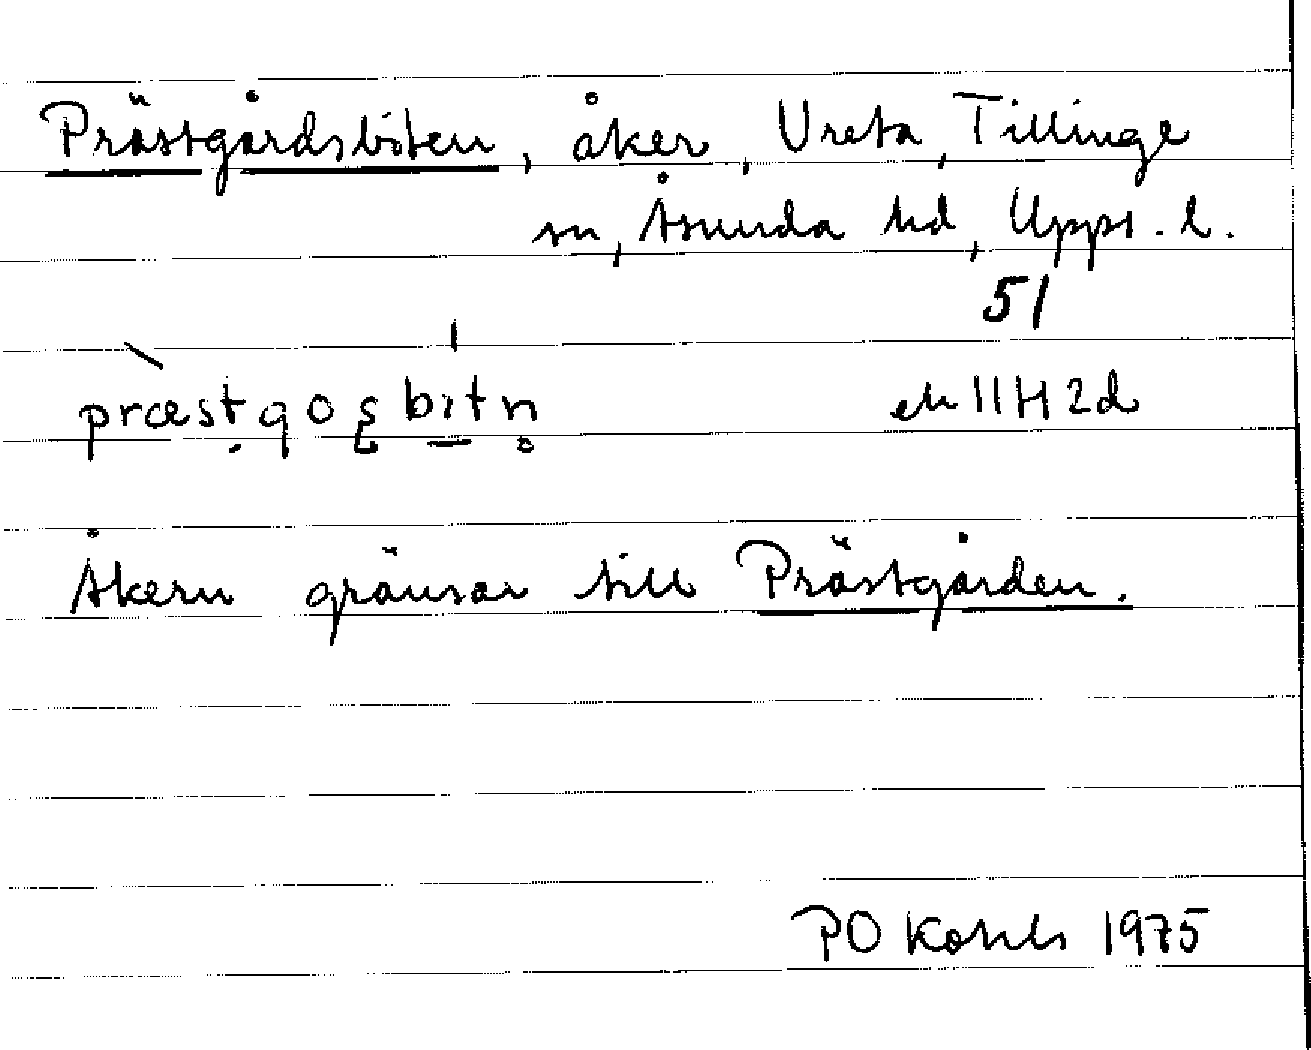 Prästgårdsbiten, åker, Vreta, Tillinge
sn, Åsunda hd, Upps. l.
51
præstgosbitn ek 11H2d
Åkern gränsar till Prästgården.
PO 1975